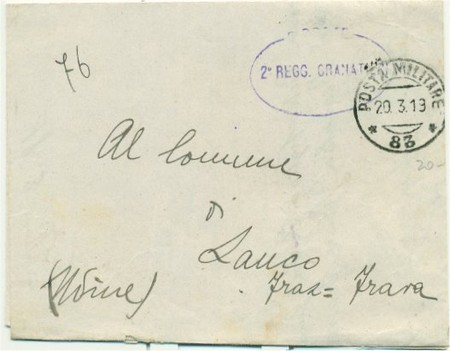 76
2° REGG. GRANAT
POSTA MILITARE
20.3.19
* 83 *
20-
Al Comune
di
Lauco
(Udine)
Fraz= Trava